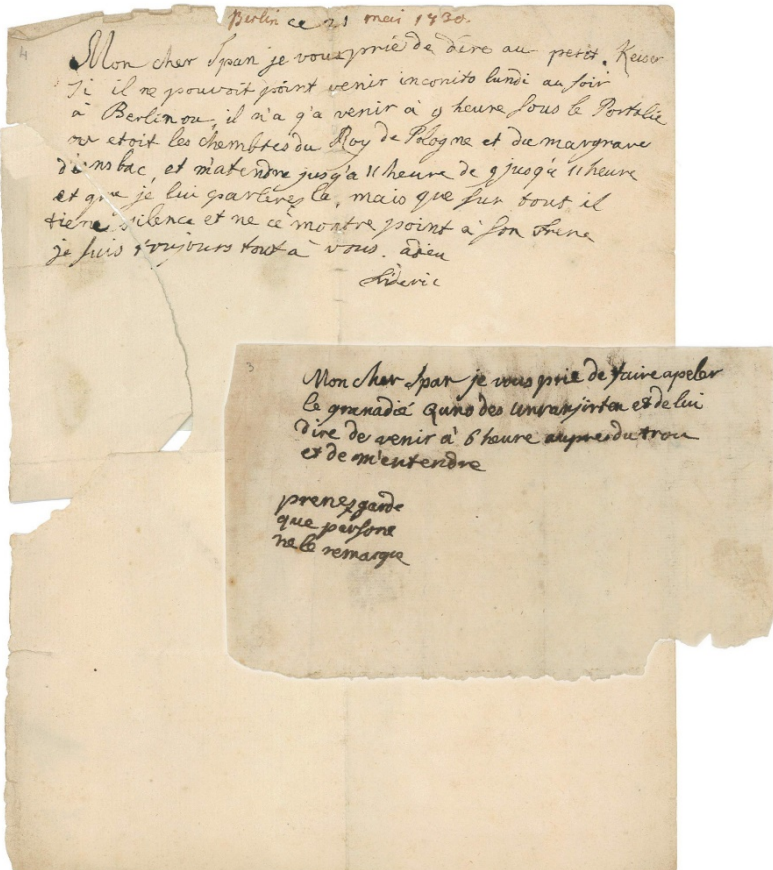 Berlin ce 21 mai 1730.
4
Mon cher Span je vous prié de dire au petit. Keiser
si il ne pouvoit point venir inconito lundi au soir
à Berlin ou, il n'a q'a venir à 9 heure sous le Portalle
ou etoit les chembres du Roy de Pologne et du margrave
d'ansbac, et m'atendre jusq'a 11 heure de 9 jusq'a 11 heure
et que je lui parlerés la, mais que sur tout il
tiene silence et ne ce montre point à son frere
je suis toujours tout à vous. adieu
Frideric
3
Mon cher Span je vous prie de faire apeler
le grenadié des unranjirten et de lui
dire de venir à 6 heure aupres du trou
et de m'entendre
prenez garde
que persone
ne le remarque